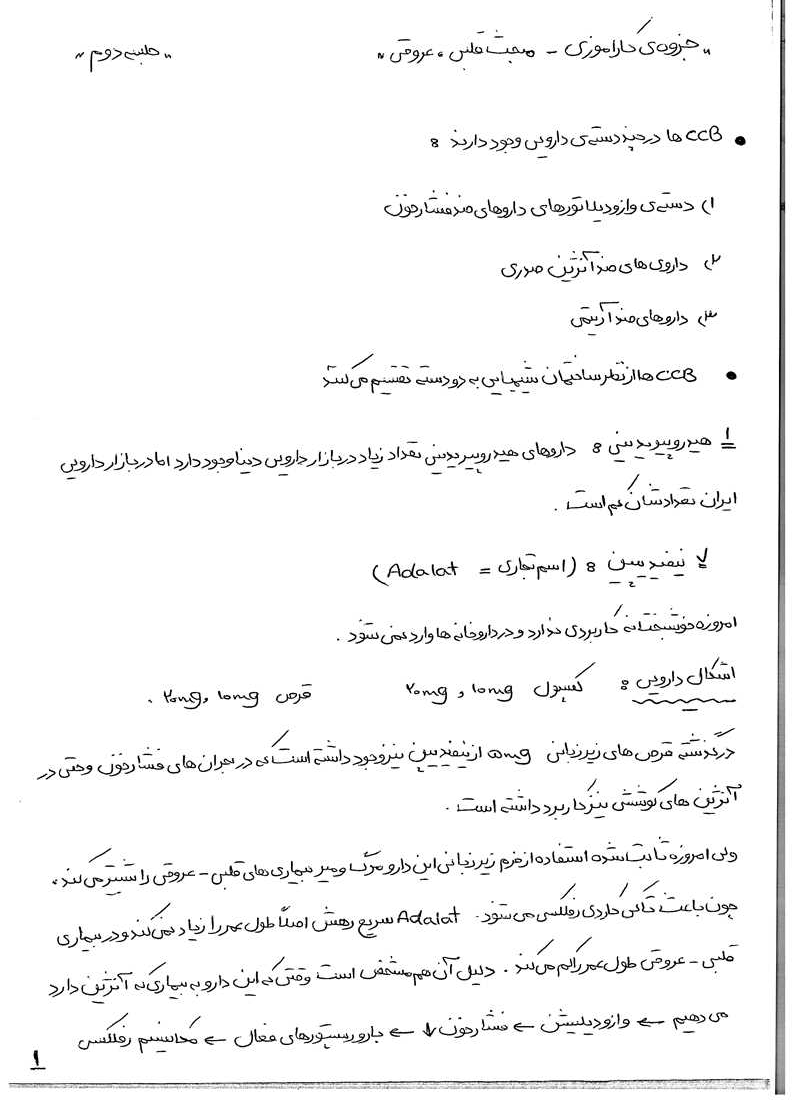 "جزوه‌ی کارآموزی - مبحث قلبی و عروقی" "جلسه دوم"
• CCB ها در چند دسته‌ی دارویی وجود دارند :
۱) دسته‌ی وازودیلاتورهای داروهای ضد فشار خون
۲) داروی های ضد آنژین صدری
۳) داروهای ضد آریتمی
• CCB ها از نظر ساختمان شیمیایی به دو دسته تقسیم می کنند
۱ هیدروپیریدینی : داروهای هیدروپیریدینی تعداد زیاد در بازار دارویی دنیا وجود دارد اما در بازار دارویی
ایران تعدادشان کم است .
نیفیدیپین : (اسم تجاری = Adalat)
امروزه خوشبختانه کاربردی ندارد و در داروخانه ها وارد نمی شود .
اشکال دارویی : کپسول ۱۰mg و ۲۰mg قرص ۱۰mg و ۲۰mg .
در گذشته قرص های زیر زبانی ۵mg از نیفیدیپین نیز وجود داشته است که در بحران های فشار خون و حتی در
آنژین های کوششی نیز کاربرد داشته است .
ولی امروزه ثابت شده استفاده از فرم زیر زبانی این دارو مرگ و میر بیماری های قلبی - عروقی را بیشتر می کند ،
چون باعث تاکی کاردی رفلکسی می شود . Adalat سریع رهش اصلاً طول عمر را زیاد نمی کند و در بیماری
قلبی - عروقی طول عمر را کم می کند . دلیل آن هم مشخص است وقتی که این دارو به بیماری که آنژین دارد
می دهیم ← وازودیلیشن ← فشار خون ↓ ← بارورسپتورهای فعال ← مکانیسم رفلکسی
۱